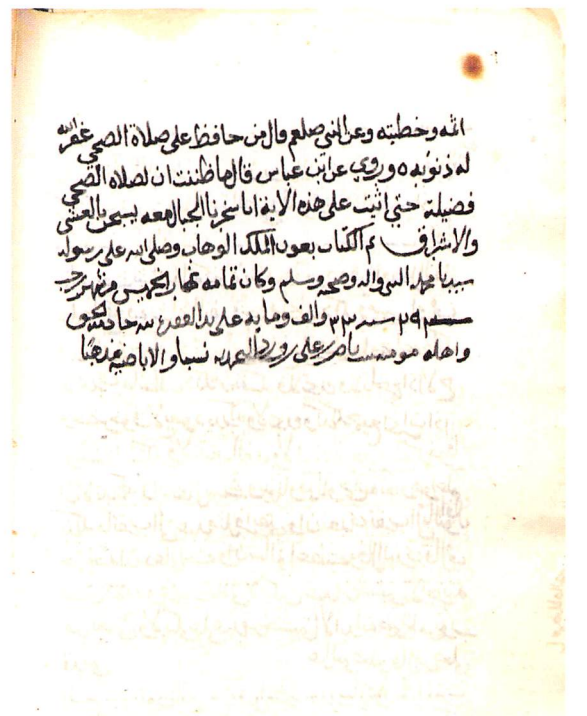 الله وخطبته وعن النبي صلعم قال من حافظ على صلاة الضحى غفر الله
له ذنوبه ٥ وروي عن ابن عباس قال ما ظننت ان لصلاة الضحى
فضيلة حتى اتيت على هذه الاية انا سخرنا الجبال معه يسبحن بالعشي
والاشراق تم الكتاب بعون الملك الوهاب وصلى الله على رسوله
سيدنا محمد النبي واله وصحبه وسلم وكان تمامه نهار الخميس من شهر رجب
٢٩ سنة ٣٣ والف وماية على يد الفقير لله خادم الحق
واهله نسبا والاباضي مذهبا